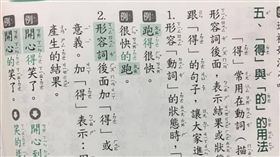 五、「得」與「的」的用法
「得」常用在動詞、
跟「得」的句子，讓大家進
1.形容「動詞」的狀態時，
詞後面，表示結果或狀
例 跑得很快。
例 很快的跑
2.形容詞後面加「得」或
意義。加「得」表示：因
產生的結果。
例 開心得笑了。
例 開心的笑了。
開心到
開心的